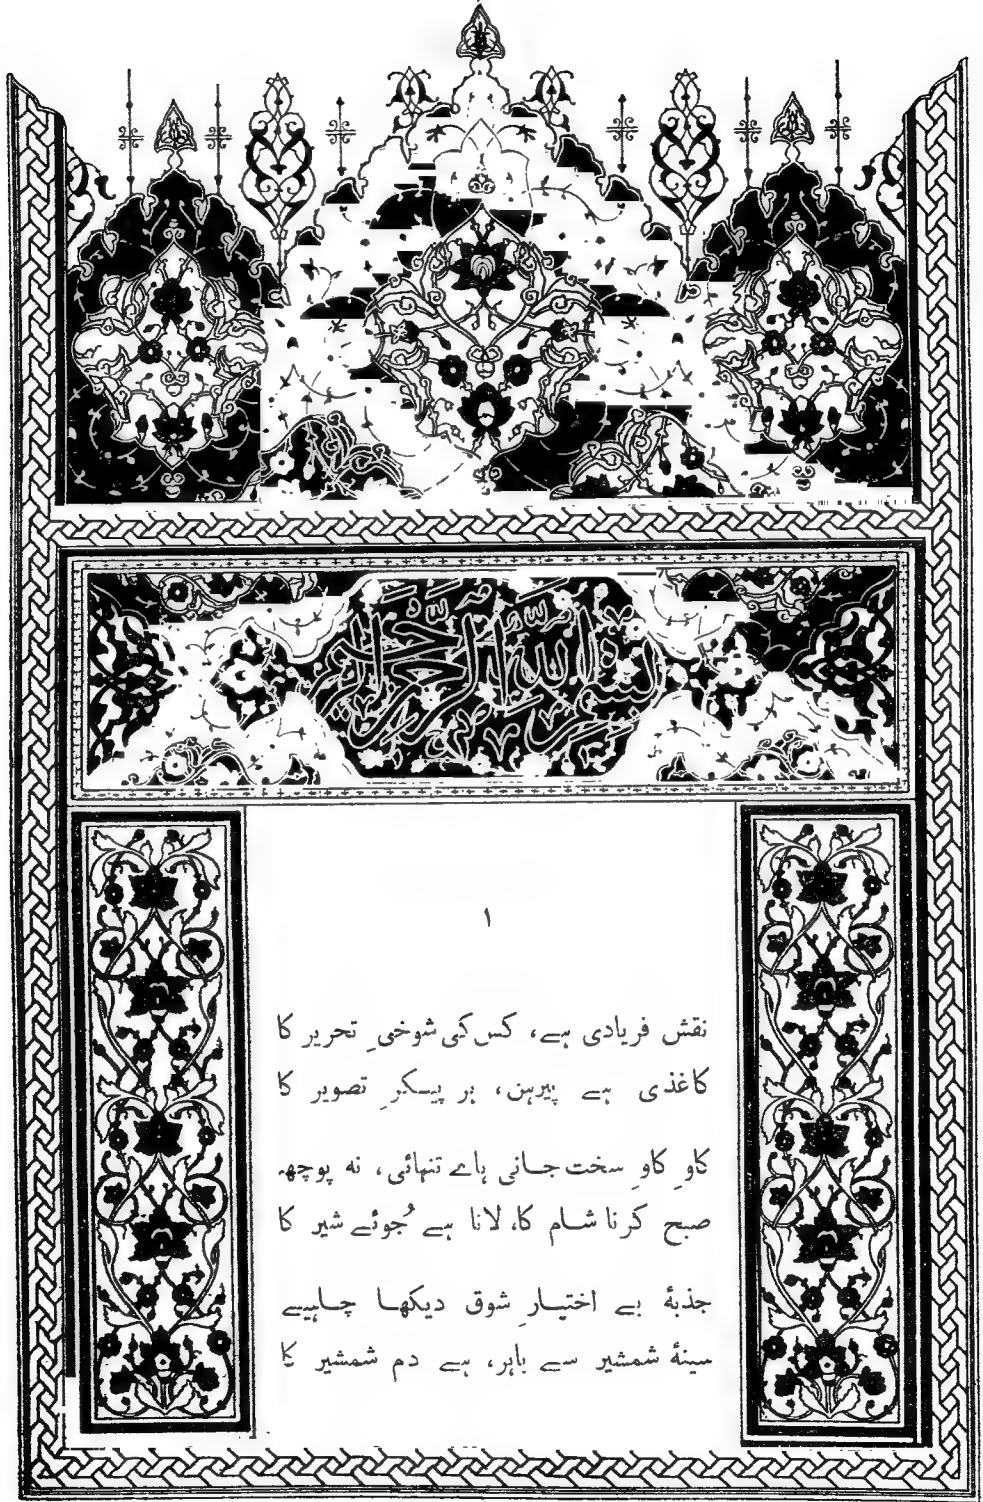 بسم الله الرحمن الرحيم
۱
نقش فریادی ہے، کس کی شوخیِ تحریر کا
کاغذی ہے پیرہن، ہر پیکرِ تصویر کا
کاوِ کاوِ سخت جانی ہاے تنہائی، نہ پوچھ
صبح کرنا شام کا، لانا ہے جُوئے شیر کا
جذبۂ بے اختیارِ شوق دیکھا چاہیے
سینۂ شمشیر سے باہر، ہے دم شمشیر کا